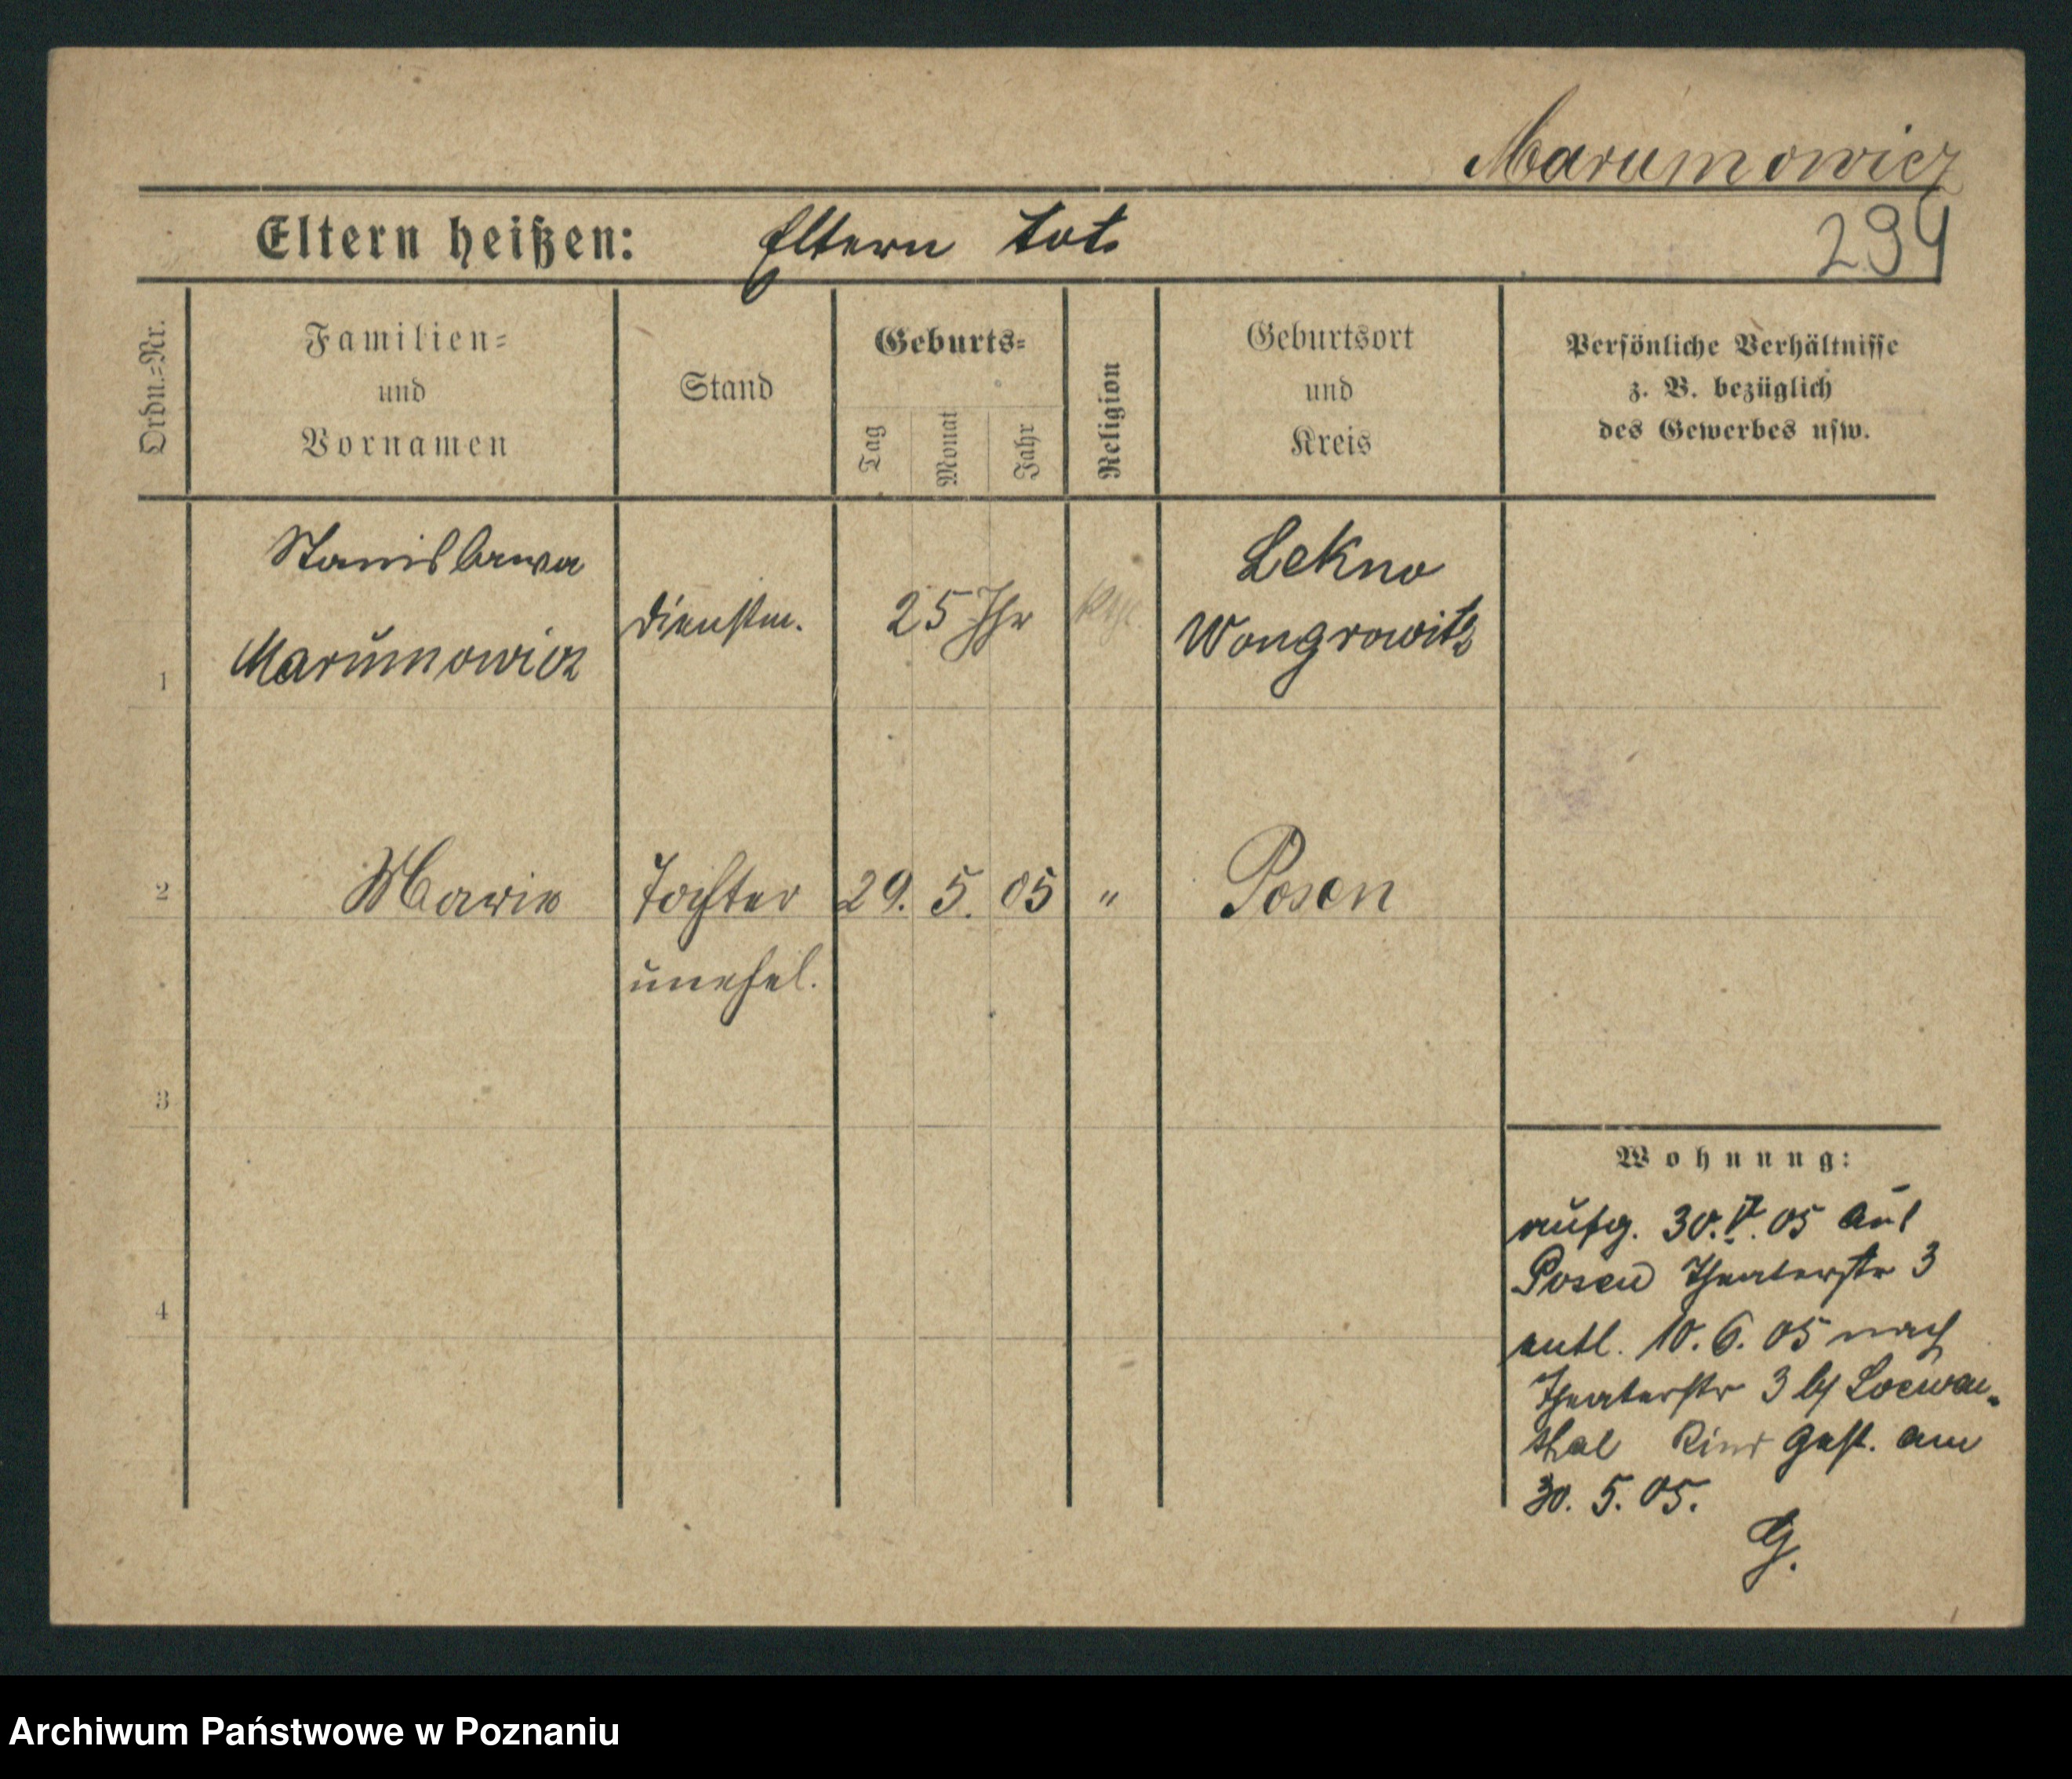 Marumowicz
Eltern heißen: Eltern tot.
294
Ordn.=Nr.
Familien=
und
Vornamen
Stand
Geburts=
Tag
Monat
Jahr
Religion
Geburtsort
und
Kreis
Persönliche Verhältnisse
z. B. bezüglich
des Gewerbes usw.
1
Stanislawa
Marumowicz
Dienstm.
25 Jhr
kath.
Lekno
Wongrowitz
2
Marie
Tochter
unehel.
29. 5. 05
"
Posen
3
4
Wohnung:
aufg. 30. V. 05 aus
Posen Theaterstr 3
entl. 10. 6. 05 nach
Theaterstr 3 by Loewen-
thal Kind gest. am
30. 5. 05.
G.
Archiwum Państwowe w Poznaniu